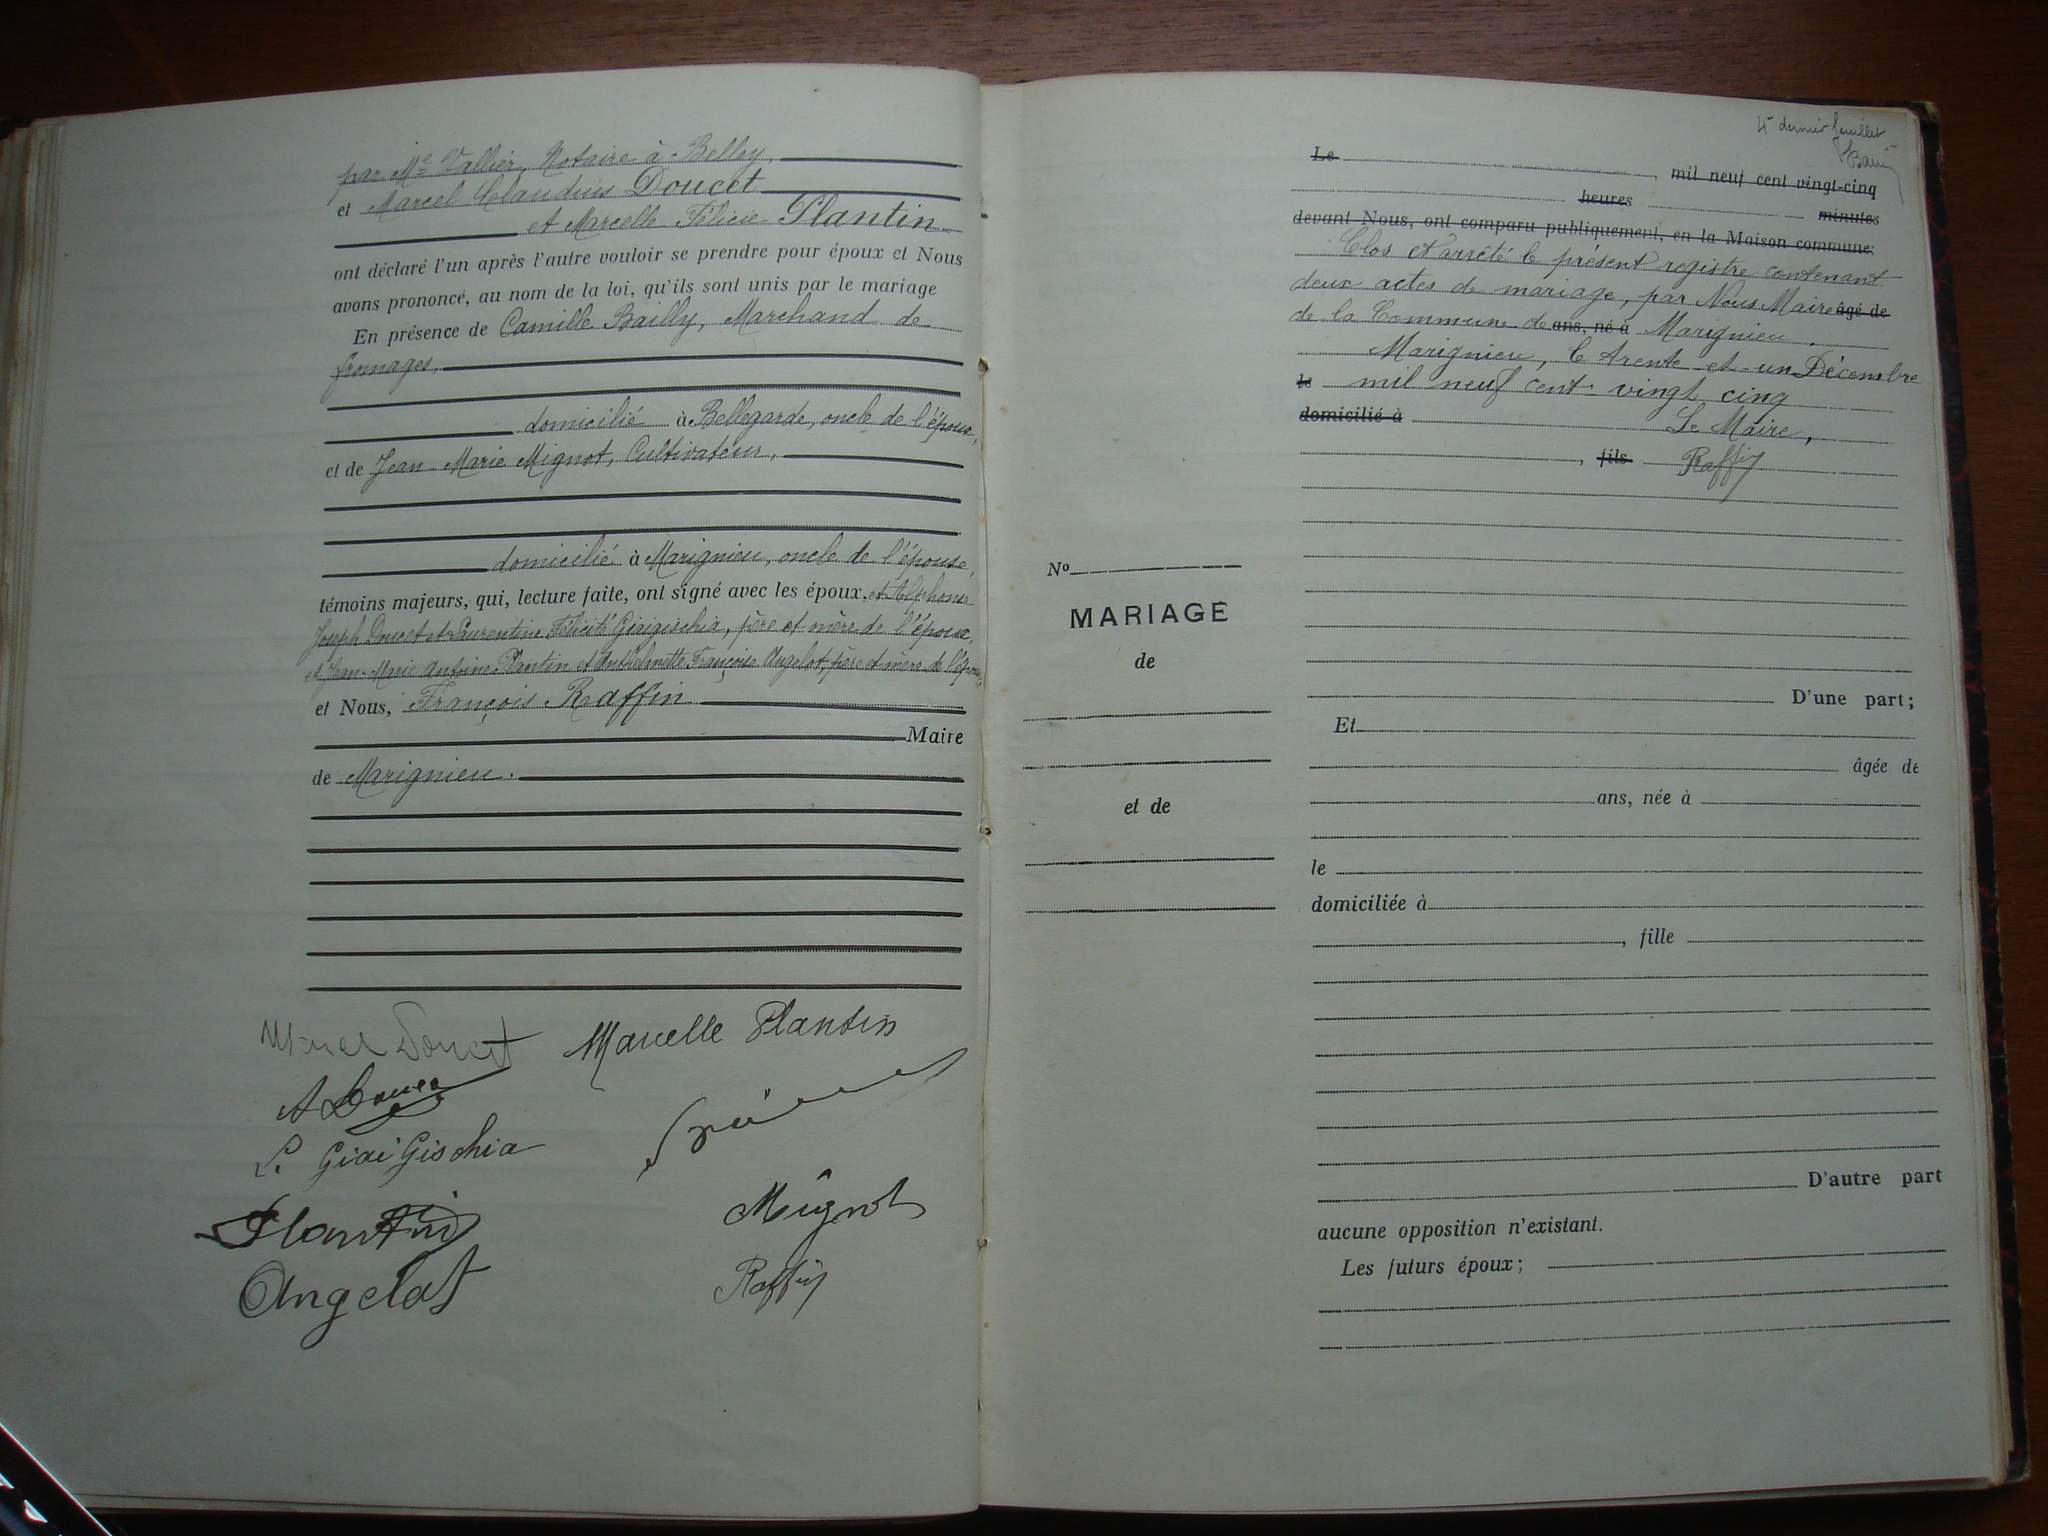 par Me Vallier, Notaire à Belley,
et Marcel Claudius Doucet
et Marcelle Félicie Plantin
ont déclaré l'un après l'autre vouloir se prendre pour époux et Nous
avons prononcé, au nom de la loi, qu'ils sont unis par le mariage
En présence de Camille Bailly, Marchand de
fromages,
domicilié à Bellegarde, oncle de l'époux,
et de Jean Marie Mignot, Cultivateur,
domicilié à Marignieu, oncle de l'épouse,
témoins majeurs, qui, lecture faite, ont signé avec les époux, et Alphonse
Joseph Doucet et Laurentine Félicité Giaigischia, père et mère de l'époux,
et Jean-Marie Antoine Plantin et Anthelmette Françoise Angelot, père et mère de l'épouse,
et Nous, François Raffin
Maire
de Marignieu.
Marcel Doucet Marcelle Plantin
A Doucet
L. Giai Gischia
Plantin Mignot
Angelot Raffin
4e dernier feuillet
Le , mil neuf cent vingt-cinq
heures minutes
devant Nous, ont comparu publiquement, en la Maison commune:
Clos et arrêté le présent registre contenant
deux actes de mariage, par Nous Maire âgé de
de la Commune de ans, né à Marignieu.
Marignieu, le trente et un Décembre
le mil neuf cent vingt cinq
domicilié à Le Maire,
, fils Raffin
No
MARIAGE
de
et de
D'une part;
Et
âgée de
ans, née à
le
domiciliée à
, fille
D'autre part
aucune opposition n'existant.
Les futurs époux;